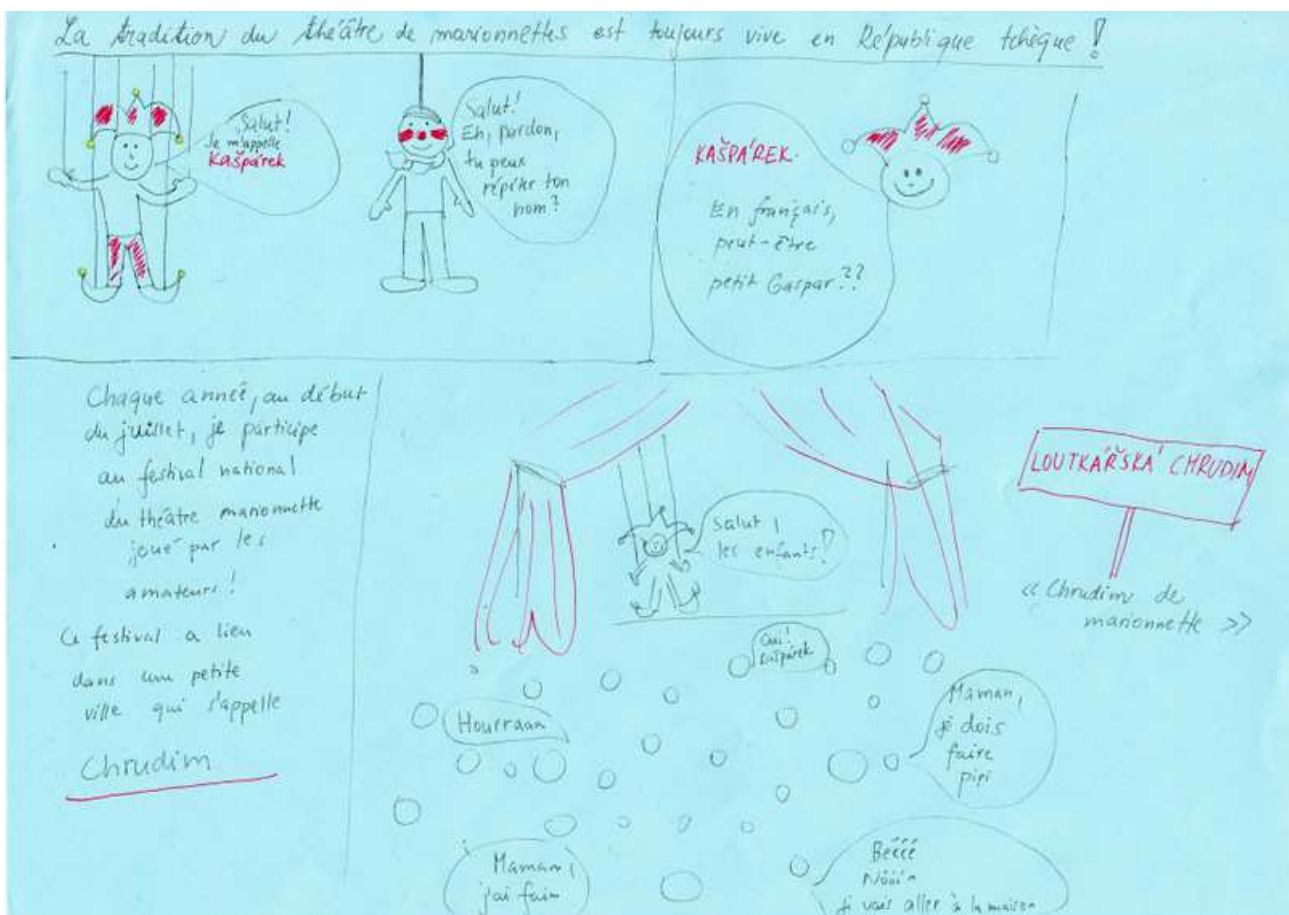 La tradition du théâtre de marionnettes est toujours vive en République tchèque !
Salut!
Je m'appelle
Kašpárek
Salut!
Eh, pardon,
tu peux
répéter ton
nom?
KAŠPÁREK.
En français,
peut-être
petit Gaspar??
Chaque année, au début
du juillet, je participe
au festival national
du théâtre marionnette
joué par les
amateurs!
Ce festival a lieu
dans une petite
ville qui s'appelle
Chrudim
Salut,
les enfants!
LOUTKÁŘSKÁ CHRUDIM
<< Chrudim de
marionnette >>
Oui!
Kašpárek
Hourraaa
Maman,
je dois
faire
pipi
Maman,
j'ai faim
Bééé
vais aller à la maison